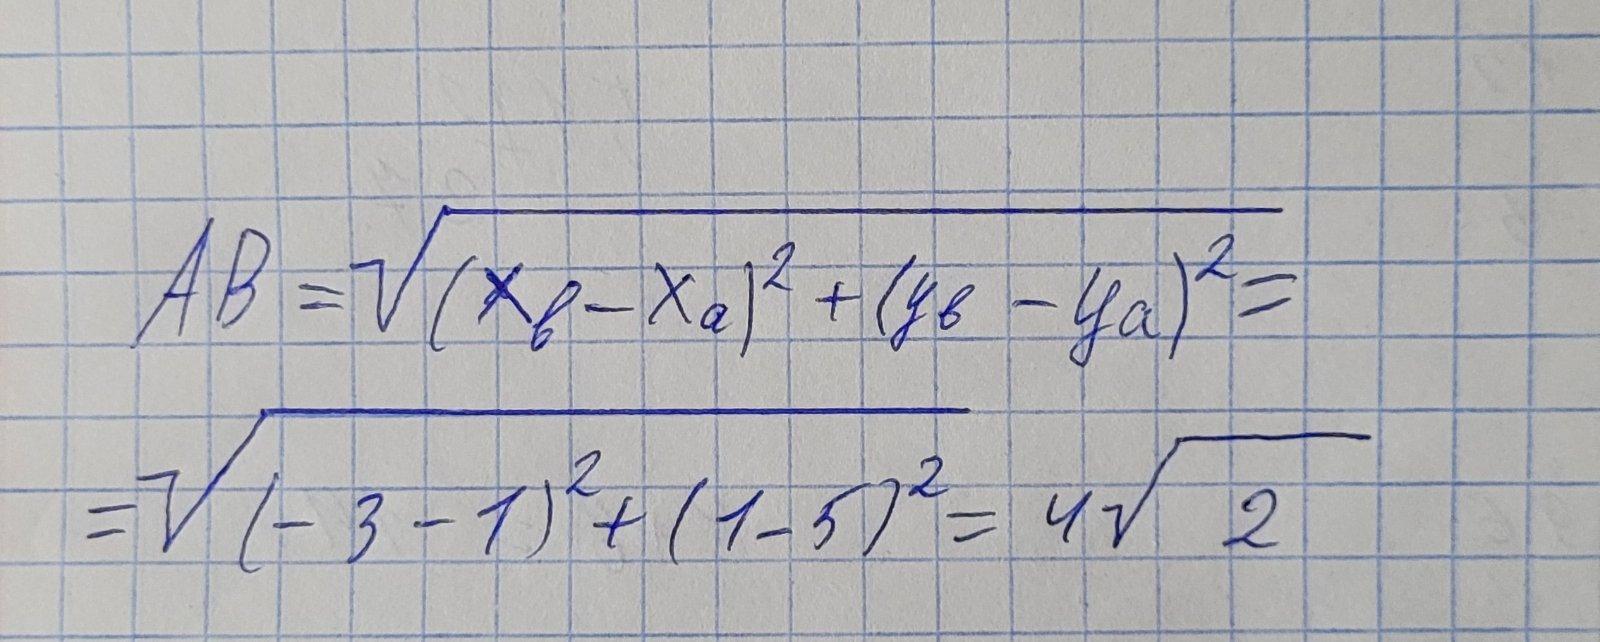 AB = √(x_в - x_a)² + (y_в - y_a)² =
= √(-3-1)² + (1-5)² = 4√2